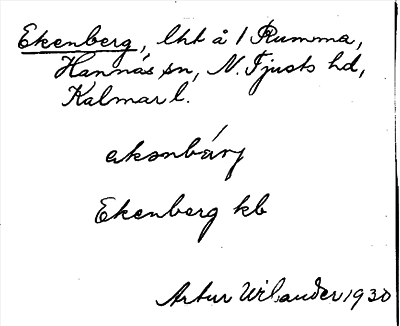 Ekenberg, lht å 1 Rumma,
Hannäs sn, N. Tjusts hd,
Kalmar l.
ekenbärj
Ekenberg kb
Artur Wilander 1930